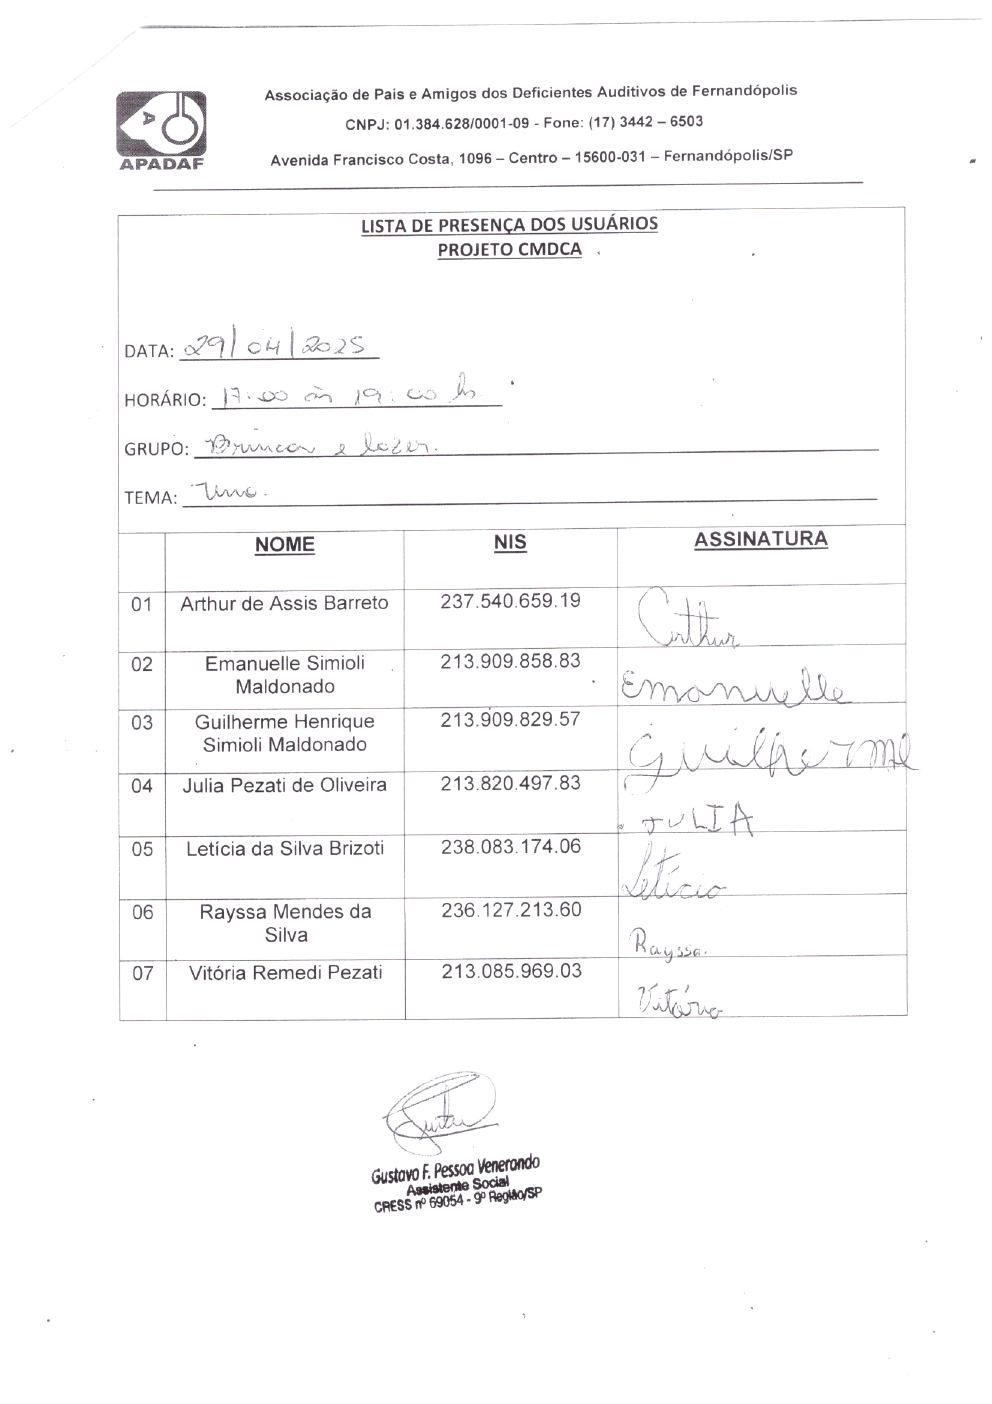 Associação de Pais e Amigos dos Deficientes Auditivos de Fernandópolis
CNPJ: 01.384.628/0001-09 - Fone: (17) 3442 – 6503
Avenida Francisco Costa, 1096 – Centro – 15600-031 – Fernandópolis/SP
A
APADAF
LISTA DE PRESENÇA DOS USUÁRIOS
PROJETO CMDCA
DATA: 29/04/2025
HORÁRIO: 17:00 às 19:00 hs
GRUPO: Brincar e lazer.
TEMA: Uno.
NOME NIS ASSINATURA
01 Arthur de Assis Barreto 237.540.659.19 Arthur
02 Emanuelle Simioli 213.909.858.83 Emanuelle
Maldonado
03 Guilherme Henrique 213.909.829.57 Guilherme
Simioli Maldonado
04 Julia Pezati de Oliveira 213.820.497.83 JULIA
05 Letícia da Silva Brizoti 238.083.174.06 Letícia
06 Rayssa Mendes da 236.127.213.60 Rayssa.
Silva
07 Vitória Remedi Pezati 213.085.969.03 Vitória
Gustavo F. Pessoa Venerando
Assistente Social
CRESS nº 69054 - 9º Região/SP